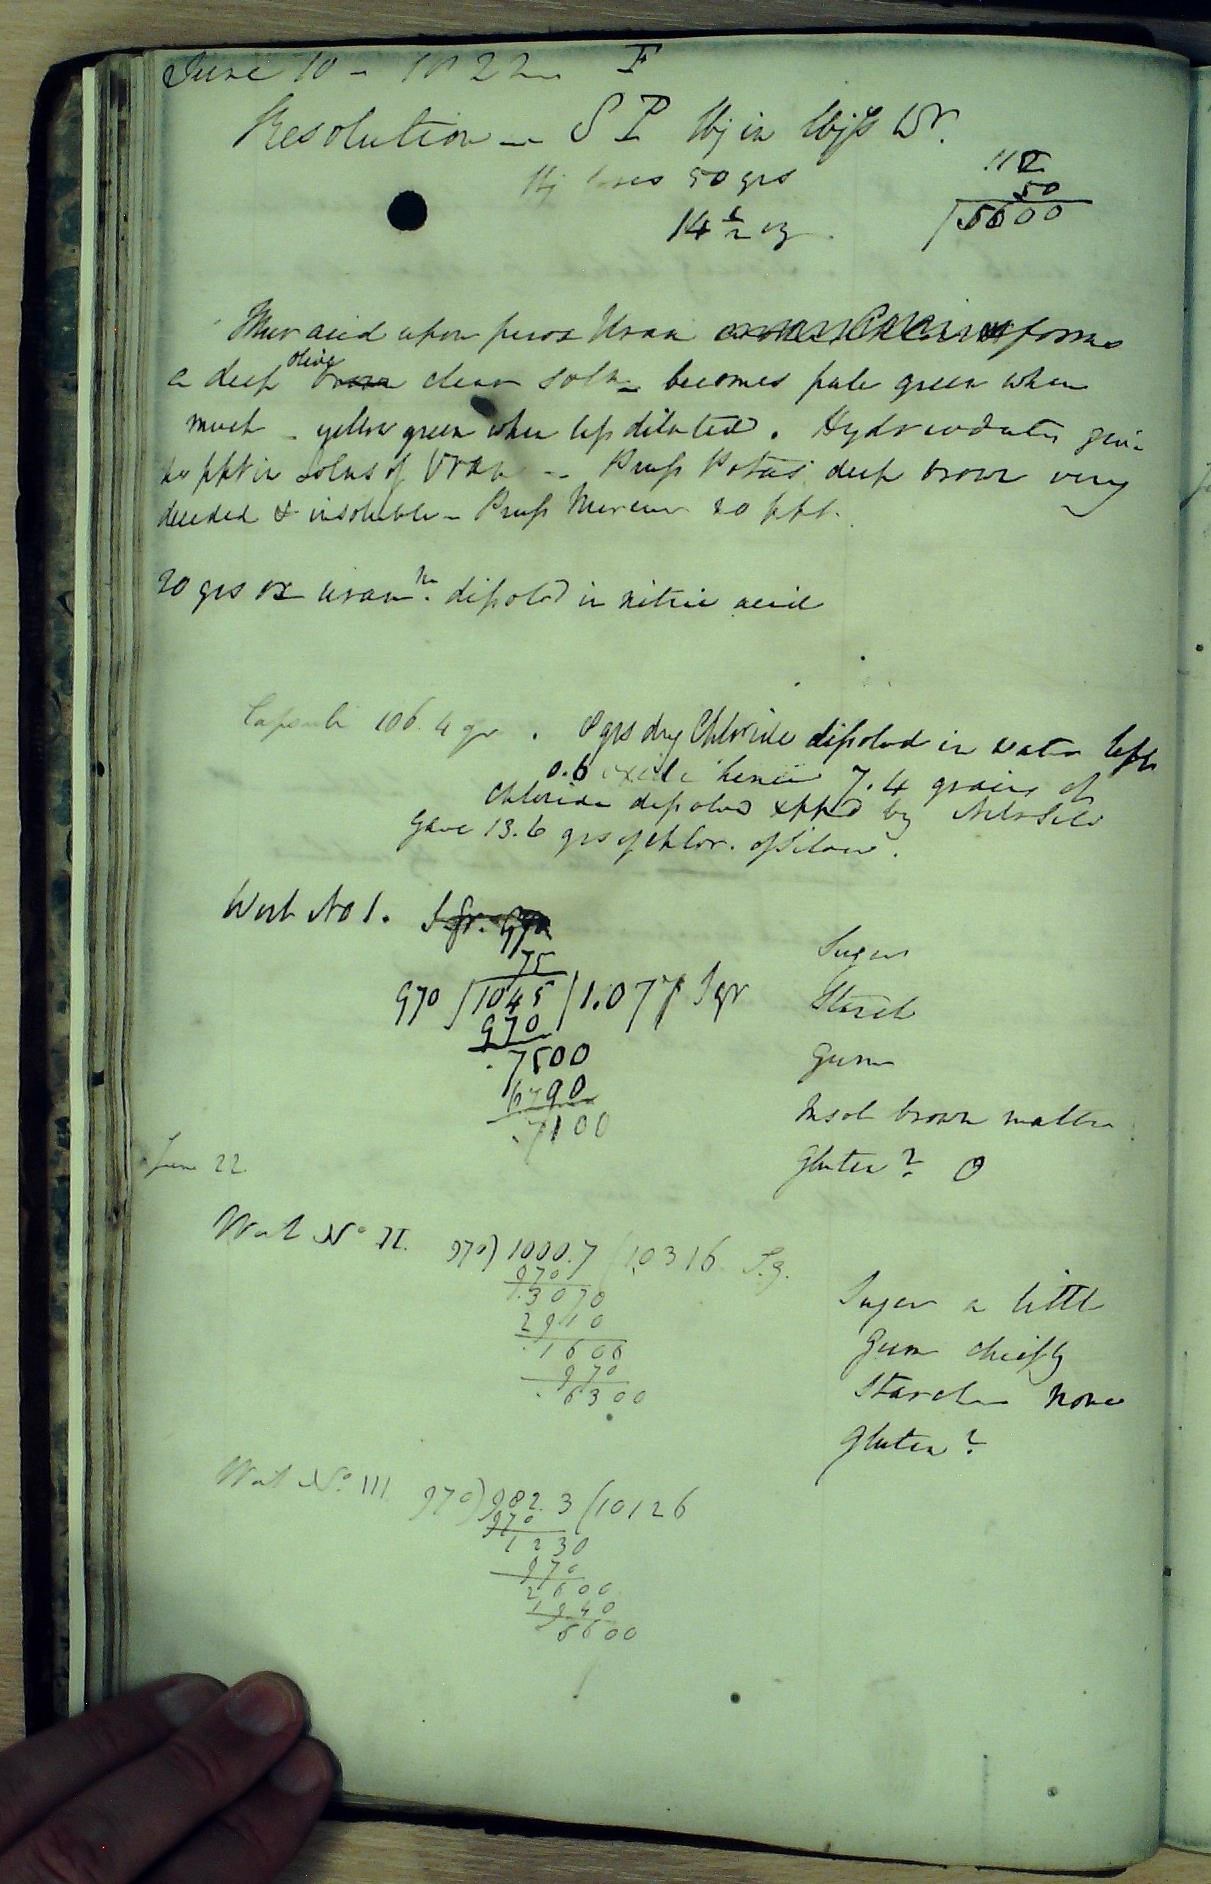 June 10 - 1822 F
Resolution - S P Hj in Hjs Wr.
Hj loses 50 grs
14 1/2 oz.
112
50
5600
Mur acid upon perox Uran forms
a deep olive brown clear soln - becomes pale green when
much - yellow green when less diluted. Hydriodates give
no ppt in solns of Uran - Pruss Potass deep brown very
decided & insoluble - Pruss Mercur no ppt.
20 grs ox uranm. dissolvd in nitric acid
Capsule 106.4 gr. 8 grs dry Chloride dissolved in water left
0.6 oxide hence 7.4 grains of
Chloride dissolved pptd by Nit Silv
gave 13.6 grs of chlor. of Silver.
Wort No 1. S gr. 970
75
970 ) 1045 ( 1.077 S gr
970
.7500
6790
.7100
Sugar
Starch
Gum
Insol brown matter
Gluten? 0
June 22
Wort No II. 970) 1000.7 (1.0316 S.g.
970
.3070
2910
.1600
970
.6300
Sugar a little
Gum chiefly
Starch none
Gluten?
Wort No. III. 970) 982.3 (10126
970
1230
970
2600
1940
6600